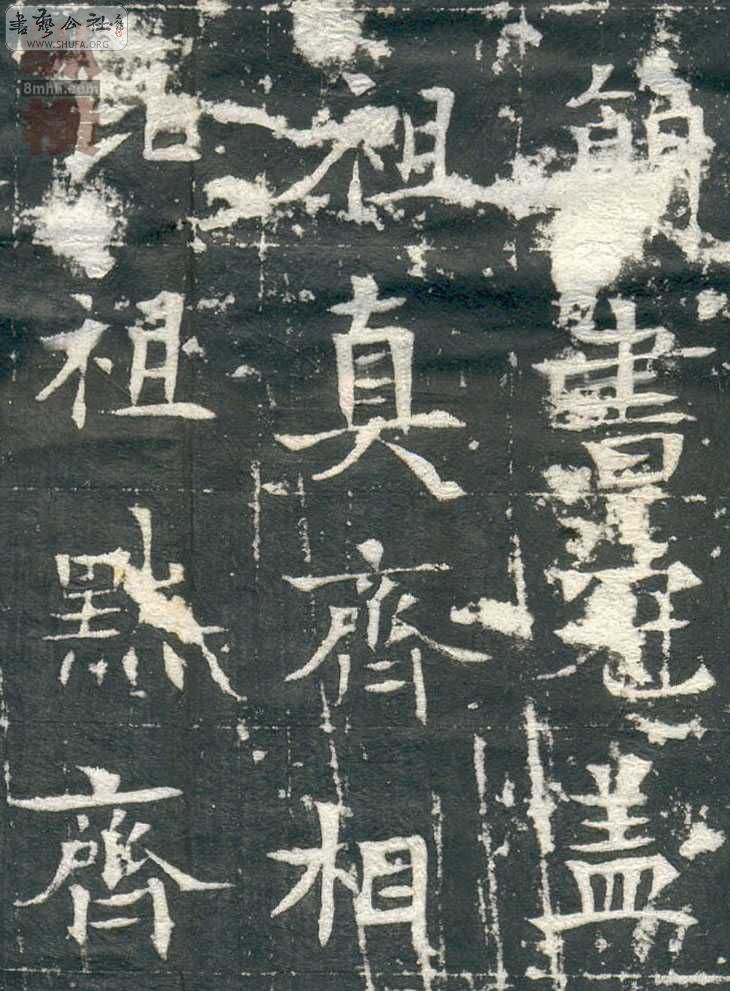 書藝公社
WWW.SHUFA.ORG
8mhh.com
書冠盖
祖真齊相
祖點齊